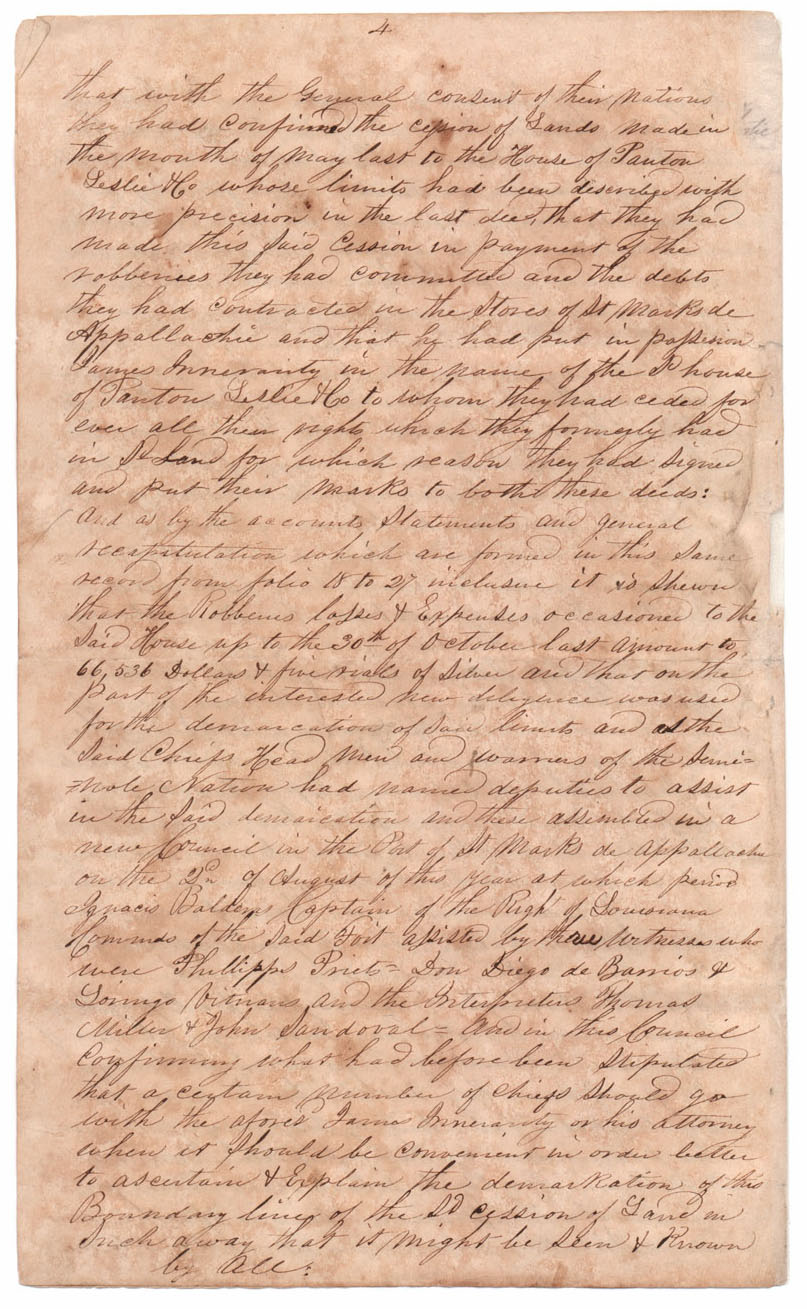 4
that with the General consent of their Nations
they had confirmed the cession of Lands made in
the month of May last to the House of Panton
Leslie & Co whose limits had been described with
more precision in the last deed, that they had
made this said Cession in payment of the
robberies they had committed and the debts
they had contracted in the Stores of St Marks de
Appallachie and that he had put in possession
James Innerarity in the name of the Sd house
of Panton Leslie & Co to whom they had ceded for
ever all their rights which they formerly had
in Sd Land for which reason they had signed
and put their marks to both these deeds:
And as by the accounts Statements and general
recapitulation which are formed in this same
record from folio 18 to 27 inclusive it is shewn
that the Robberies losses & Expenses occasioned to the
Said House up to the 30th of October last amount to
66,536 Dollars & five rials of Silver and that on the
part of the interested new diligence was used
for the demarcation of said limits and as the
Said Chiefs Head Men and warriors of the Semi=
=nole Nation had named deputies to assist
in the said demarcation and these assembled in a
new Council in the Port of St Marks de Appallachie
on the 2d of August of this year at which period
Ignacio Captain of the Regt of Louisiana
Commdt of the Said Fort assisted by three Witnesses who
were Phillipps Priets= Don Diego de Barrios &
and the Interpreters Thomas
Miller & John Sandoval= And in this Council
Confirming what had before been Stipulated
that a certain number of chiefs should go
with the aforesd James Innerarity or his attorney
when it should be convenient in order better
to ascertain & Explain the demarkation of this
Boundary line of the Sd cession of Land in
Such a way that it might be seen & Known
by All: